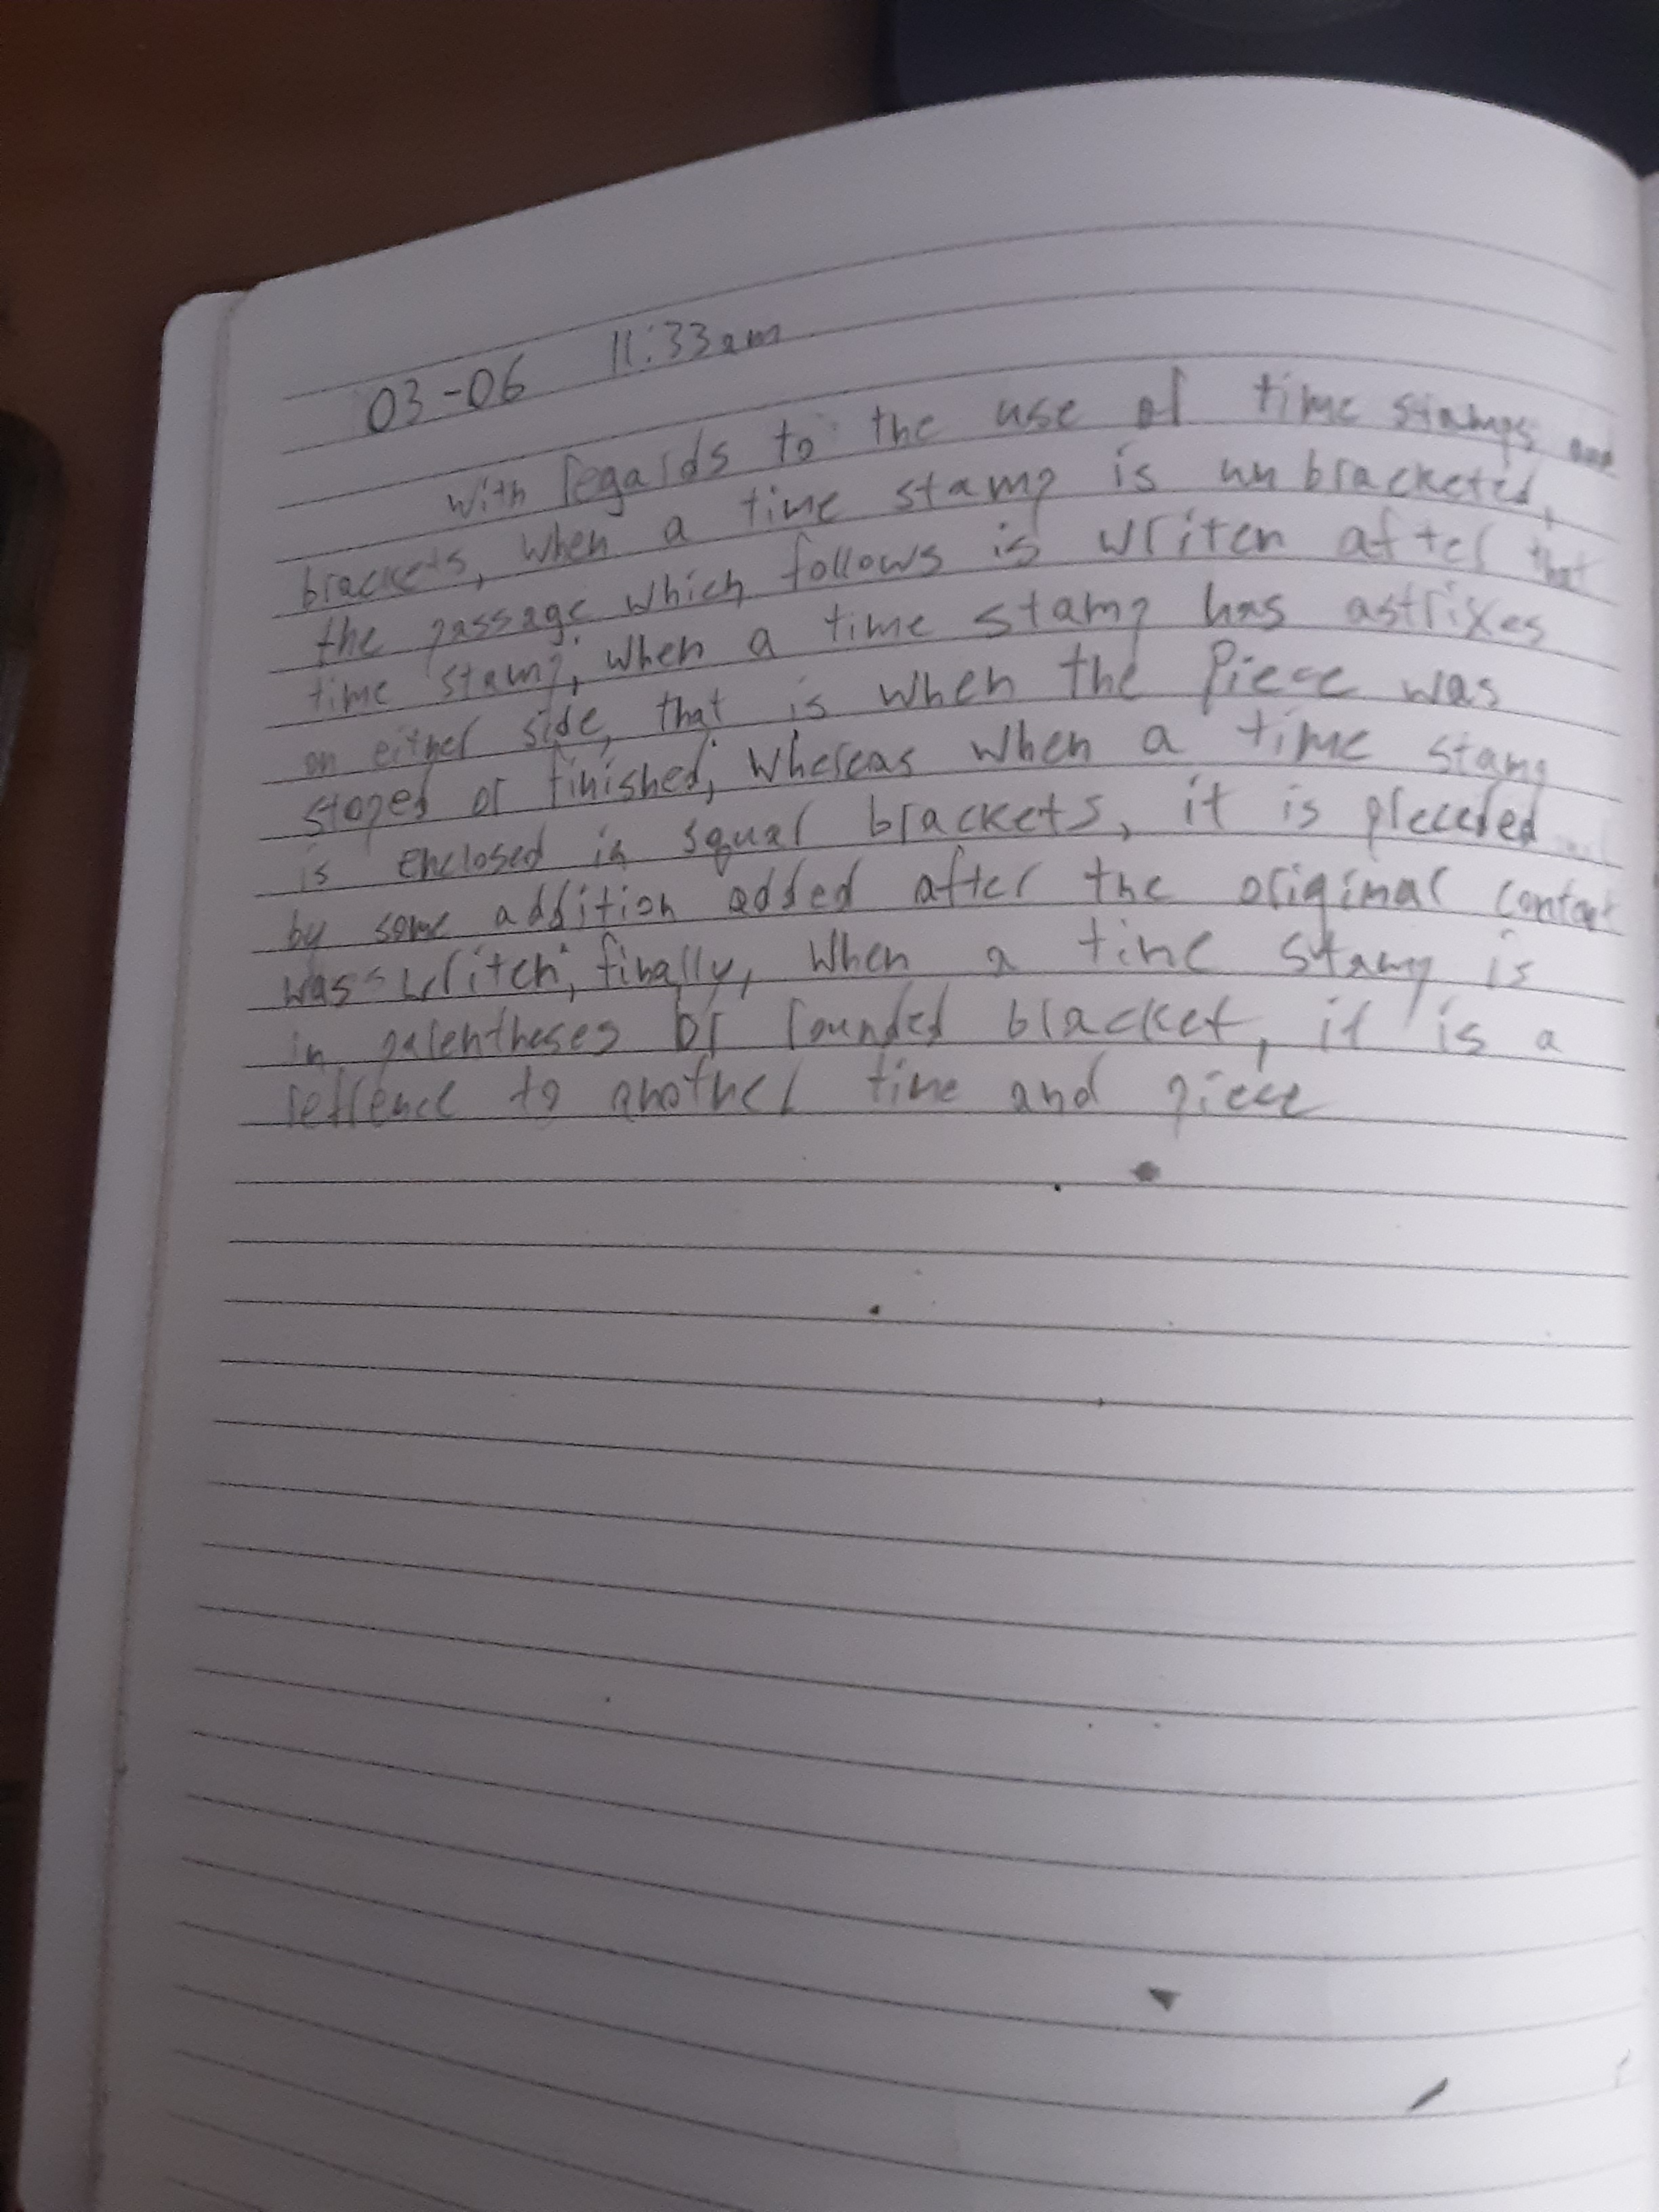 03-06 11:33am
with regards to the use of time stamps and
brackets, when a time stamp is unbracketed,
the passage which follows is writen after that
time stamp; when a time stamp has astrixes
on either side, that is when the piece was
stoped or finished; whereas when a time stamp
is enclosed in squar brackets, it is preceded
by some addition added after the original content
was writen; finally, when a time stamp is
in parentheses or rounded bracket, it is a
refrence to another time and piece